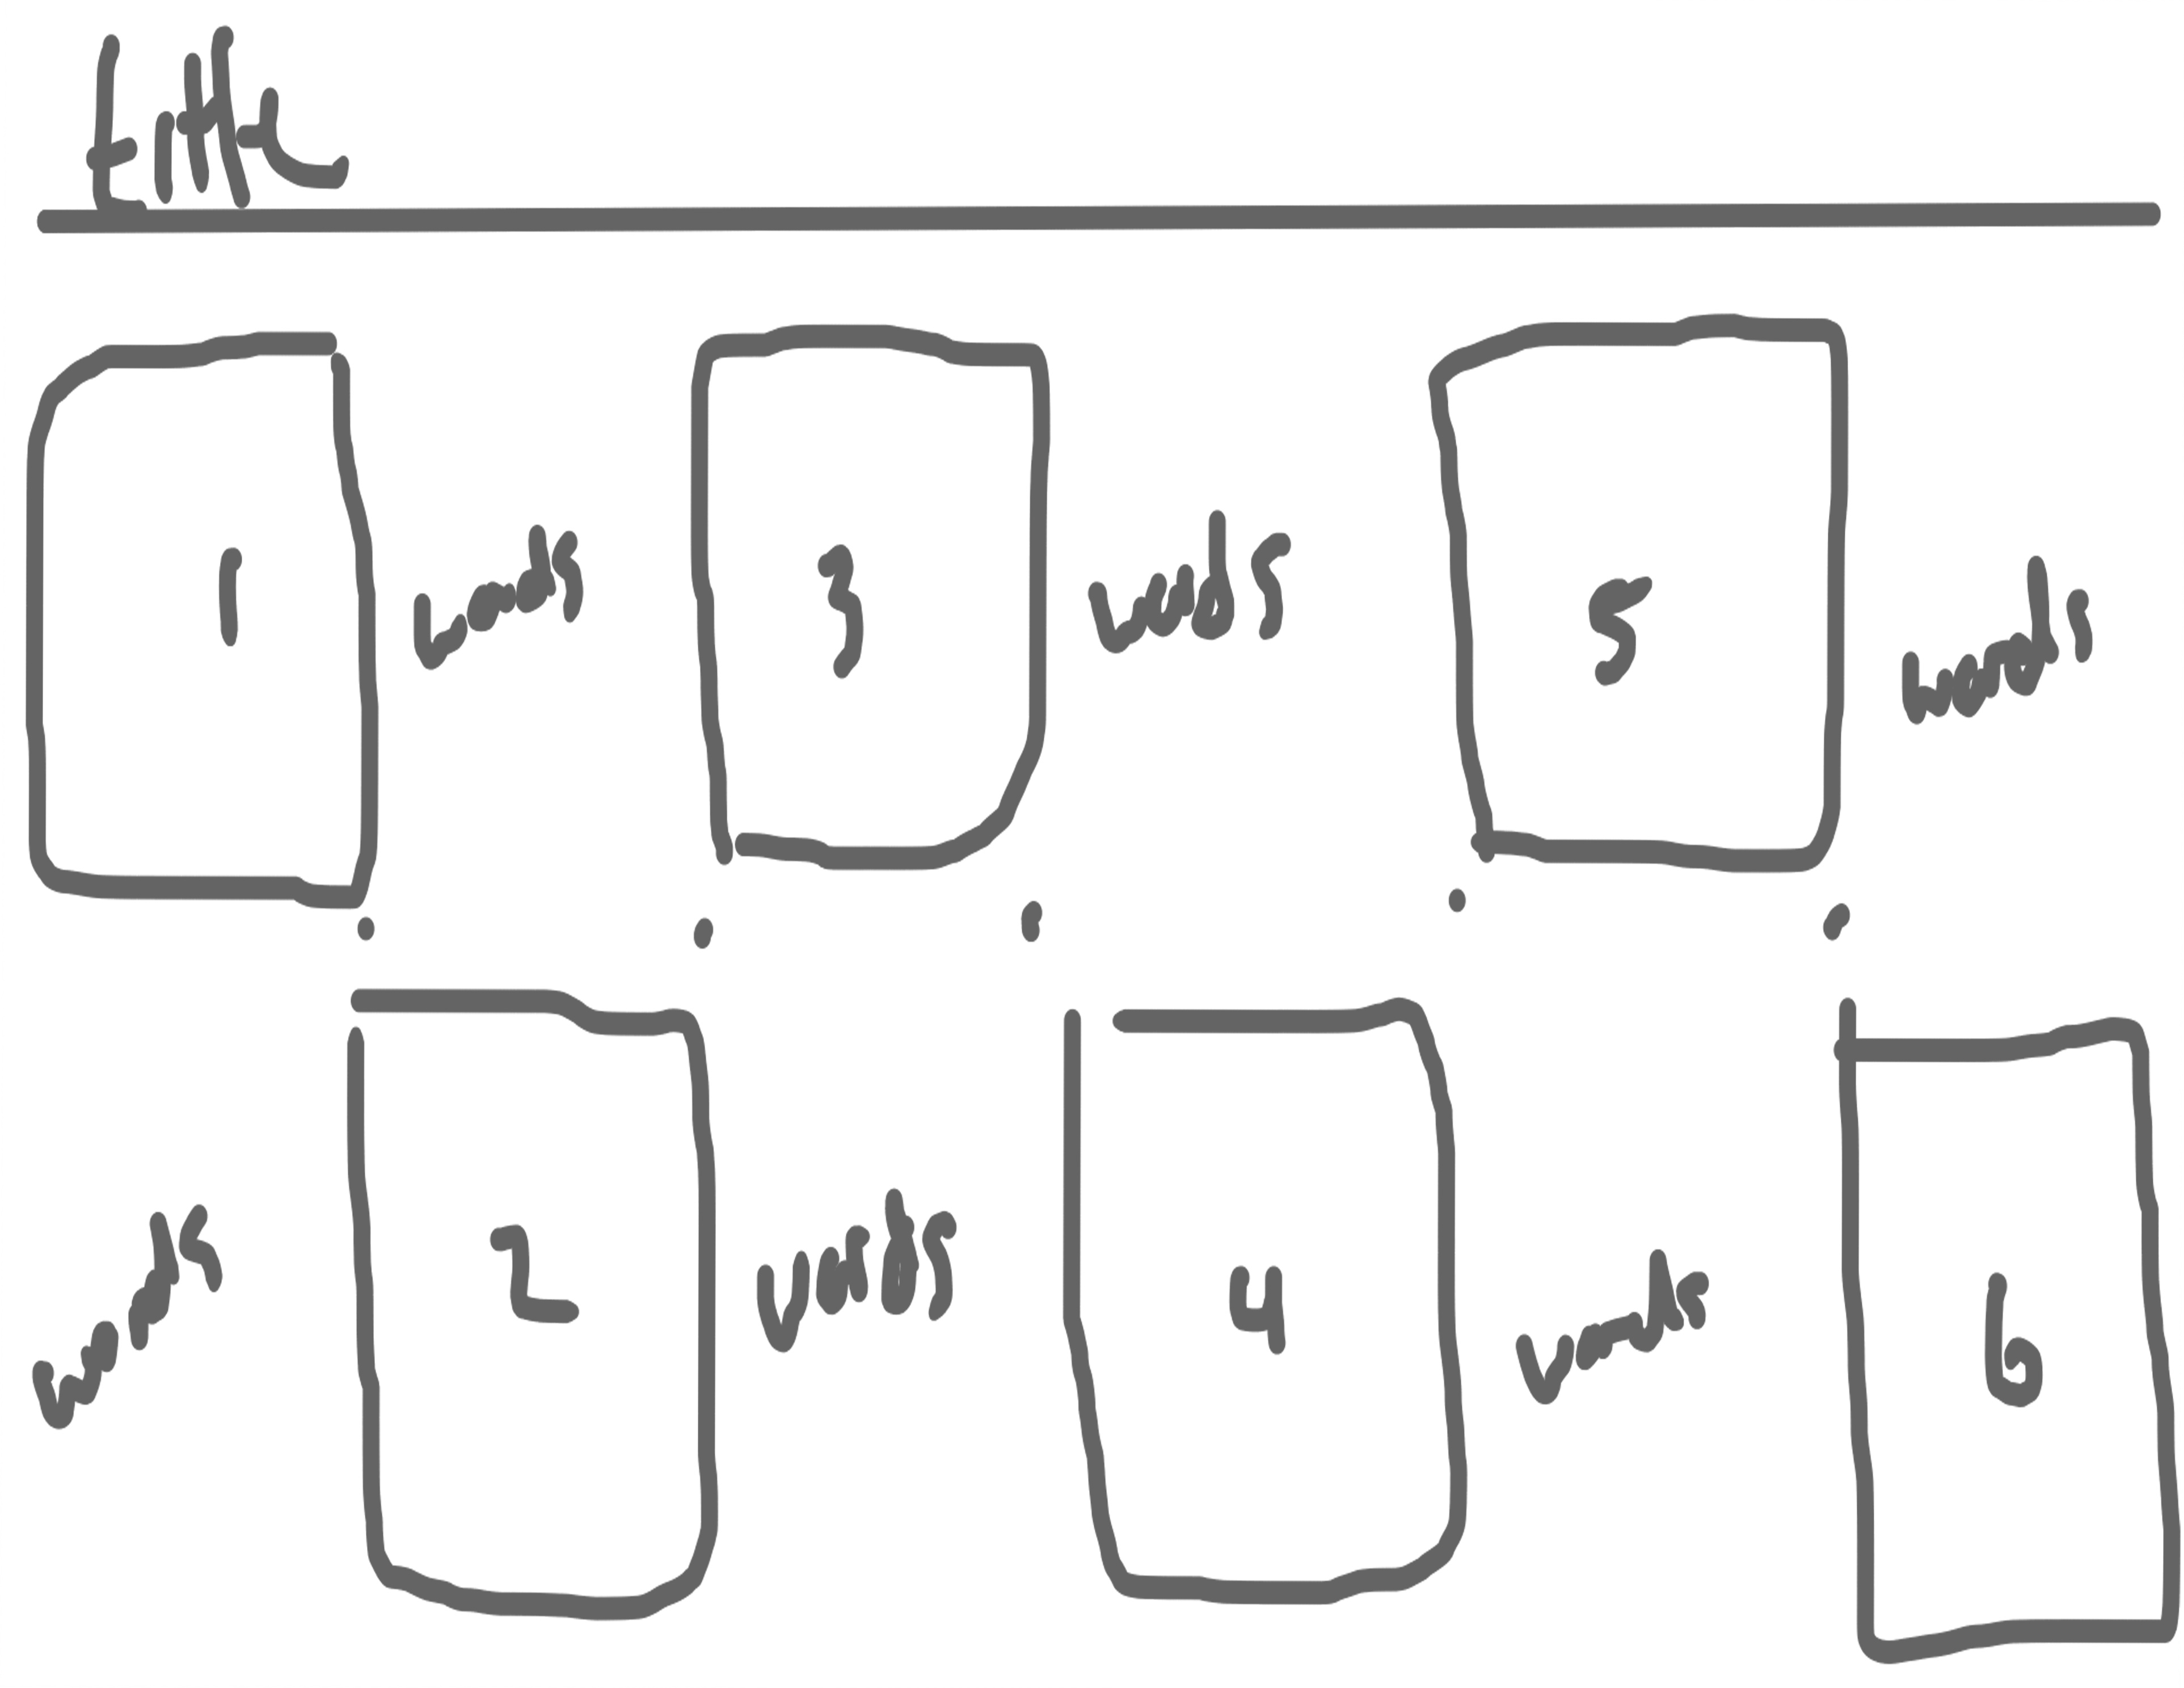 title
1 words 3 words 5 words
words 2 words 4 words 6